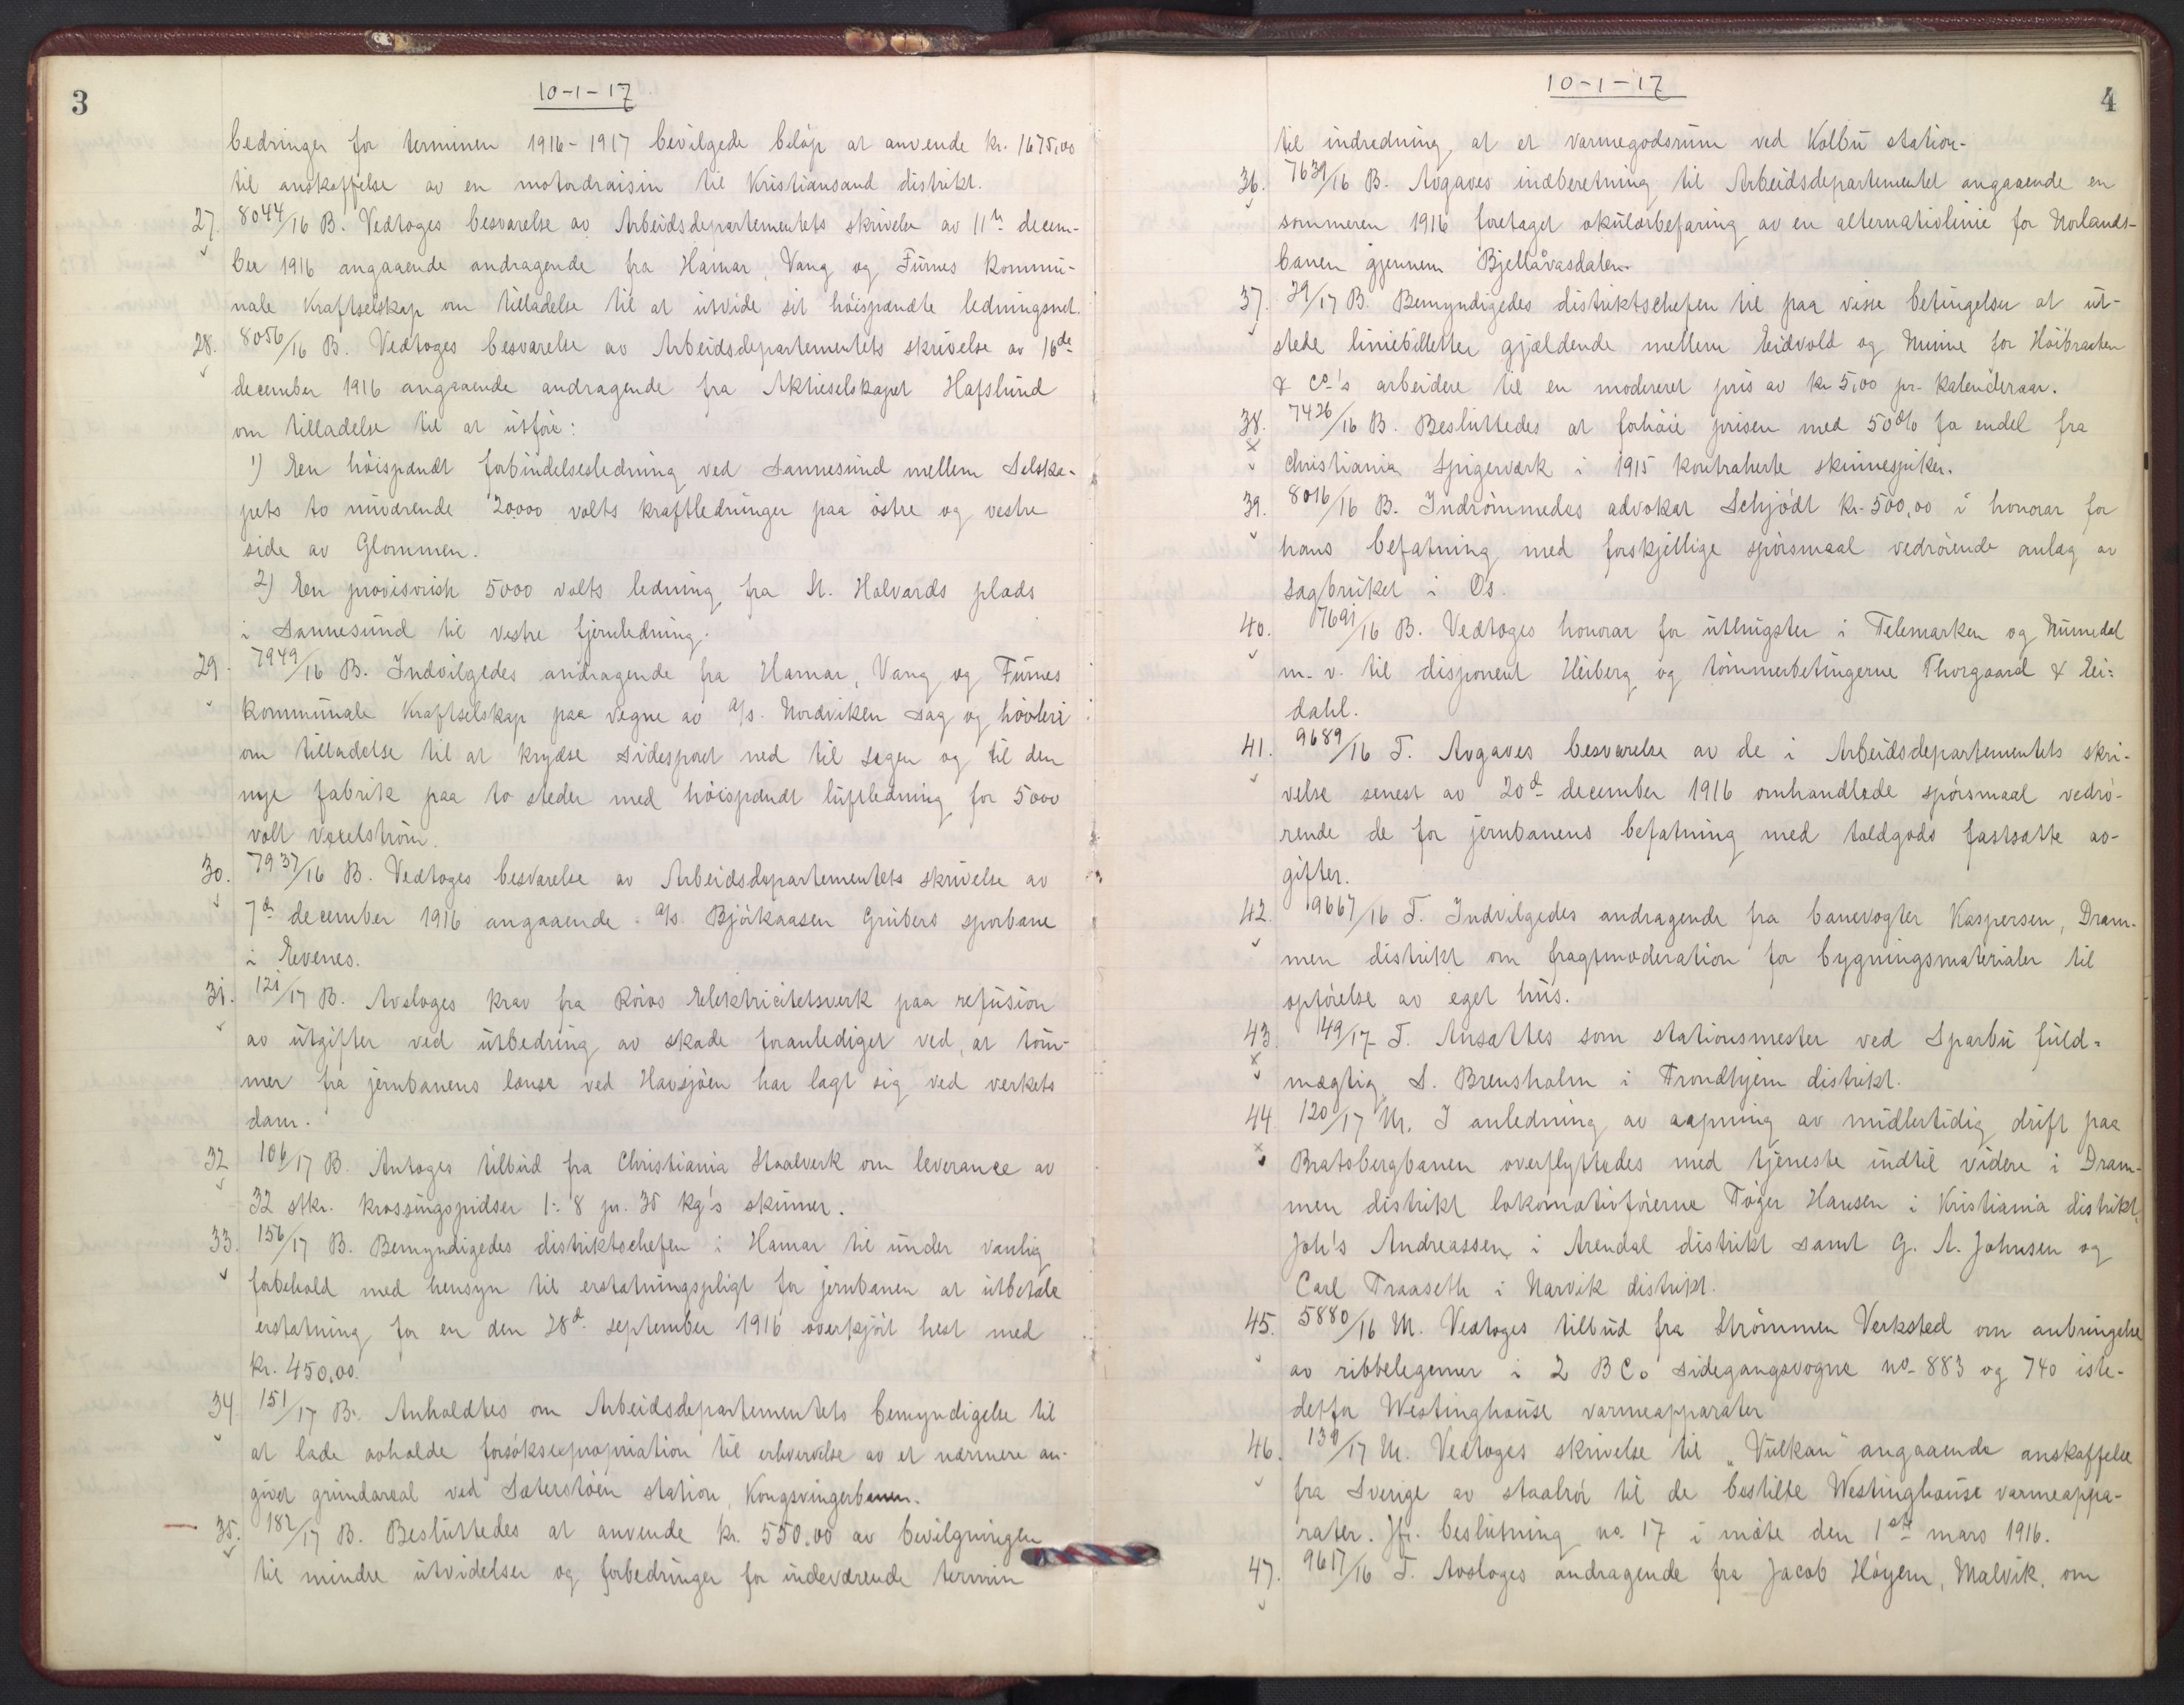 3
10-1-17
bedringer for terminen 1916-1917 bevilgede beløp at anvende kr. 1675,00
til anskaffelse av en motordraisin til Kristiansand distrikt.
27. 8044/16 B. Vedtoges besvarelse av Arbeidsdepartementets skrivelse av 11te decem-
ber 1916 angaaende andragende fra Hamar, Vang og Furnes kommu-
nale Kraftselskap om tilladelse til at utvide sit høispændte ledningsnet.
28. 8056/16 B. Vedtoges besvarelse av Arbeidsdepartementets skrivelse av 16de
december 1916 angaaende andragende fra Aktieselskapet Hafslund
om tilladelse til at utføre:
1) Een høispændt forbindelsesledning ved Sannesund mellem Selska-
pets to nuværende 20000 volts kraftledninger paa østre og vestre
side av Glommen.
2) Een provisorisk 5000 volts ledning fra St. Halvards plads
i Sannesund til vestre fjernledning.
29. 7949/16 B. Indvilgedes andragende fra Hamar, Vang og Furnes
kommunale Kraftselskap paa vegne av A/s. Nordviken sag og høvleri
om tilladelse til at krydse sidesporet ned til sagen og til den
nye fabrik paa to steder med høispændt luftledning for 5000
volt vexelstrøm.
30. 7937/16 B. Vedtoges besvarelse av Arbeidsdepartementets skrivelse av
7de december 1916 angaaende A/s. Bjørkaasen Grubers sporbane
i Evenes.
31. 121/17 B. Avsloges krav fra Røros Elektricitetsverk paa refusion
av utgifter ved utbedring av skade foranlediget ved, at tøm-
mer fra jernbanens lense ved Havsjøen har lagt sig ved verkets
dam.
32 106/17 B. Antoges tilbud fra Christiania Staalverk om leverance av
32 stkr. krossingspidser 1:8 pr. 35 kg's skinner.
33. 156/17 B. Bemyndigedes distriktschefen i Hamar til under vanlig
forbehold med hensyn til erstatningspligt for jernbanen at utbetale
erstatning for en den 28de september 1916 overkjørt hest med
kr. 450,00.
34 151/17 B. Anholdtes om Arbeidsdepartementets bemyndigelse til
at lade avholde forsøksexpropriation til erhvervelse av et nærmere an-
givet grundareal ved Sæterstøen station, Kongsvingerbanen.
35. 182/17 B. Besluttedes at anvende kr. 550.00 av bevilgningen
til mindre utvidelser og forbedringer for indeværende termin
4
10-1-17
til indredning at et varmegodsrum ved Kolbu station.
36. 7639/16 B. Avgaves indberetning til Arbeidsdepartementet angaaende en
sommeren 1916 foretaget okularbefaring av en alternativlinie for Norlands-
banen gjennem Bjellåvasdalen.
37. 79/17 B. Bemyndigedes distriktschefen til paa visse betingelser at ut-
stede liniebilletter gjældende mellem Eidvold og Minne for Høibraaten
& Co's arbeidere til en modereret pris av kr 5,00 pr. kalenderaar.
38. 7426/16 B. Besluttedes at forhøie prisen med 50% for endel fra
Christiania Spigerværk i 1915 kontraherte skinnespiker.
39. 8016/16 B. Indrømmedes advokat Schjødt kr. 500,00 i honorar for
hans befatning med forskjellige spørsmaal vedrørende anlæg av
sagbruket i Os.
40. 7691/16 B. Vedtoges honorar for uthugster i Telemarken og Numedal
m. v. til disponent Heiberg og tømmerbetingerne Thorgaard & Lei-
dahl.
41. 9689/16 T. Avgaves besvarelse av de i Arbeidsdepartementets skri-
velse senest av 20de december 1916 omhandlede spørsmaal vedrø-
rende de for jernbanens befatning med toldgods fastsatte av-
gifter.
42. 9667/16 T. Indvilgedes andragende fra banevogter Kaspersen, Dram-
men distrikt om fragtmoderation for bygningsmaterialer til
opførelse av eget hus.
43. 149/17 T. Ansattes som stationsmester ved Sparbu fuld-
mægtig S. Brensholm i Trondhjem distrikt.
44 120/17 M. I anledning av aapning av midlertidig drift paa
Bratsbergbanen overflyttedes med tjeneste indtil videre i Dram-
men distrikt lokomotivførerne Tøger Hansen i Kristiania distrikt,
Joh's Andreassen i Arendal distrikt samt G. A. Johnsen og
Carl Traaseth i Narvik distrikt.
45. 5880/16 M. Vedtoges tilbud fra Strømmen Verksted om anbringelse
av ribbelegemer i 2 BCo sidegangsvogne no. 883 og 740 iste-
detfor Westinghouse varmeapparater
46. 130/17 M. Vedtoges skrivelse til "Vulkan" angaaende anskaffelse
fra Sverige av staalrør til de bestilte Westinghouse varmeappa-
rater. Jfr. beslutning no. 17 i møte den 1ste mars 1916.
47. 9617/16 T. Avsloges andragende fra Jacob Høyem, Malvik, om